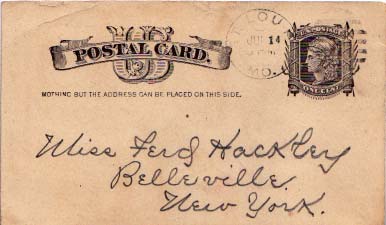 ST. LOUIS
JUN 14
MO.
U.S. POSTAGE
ONE CENT
POSTAL CARD.
US
NOTHING BUT THE ADDRESS CAN BE PLACED ON THIS SIDE.
Miss Ferd Hackley
Belleville.
New York.